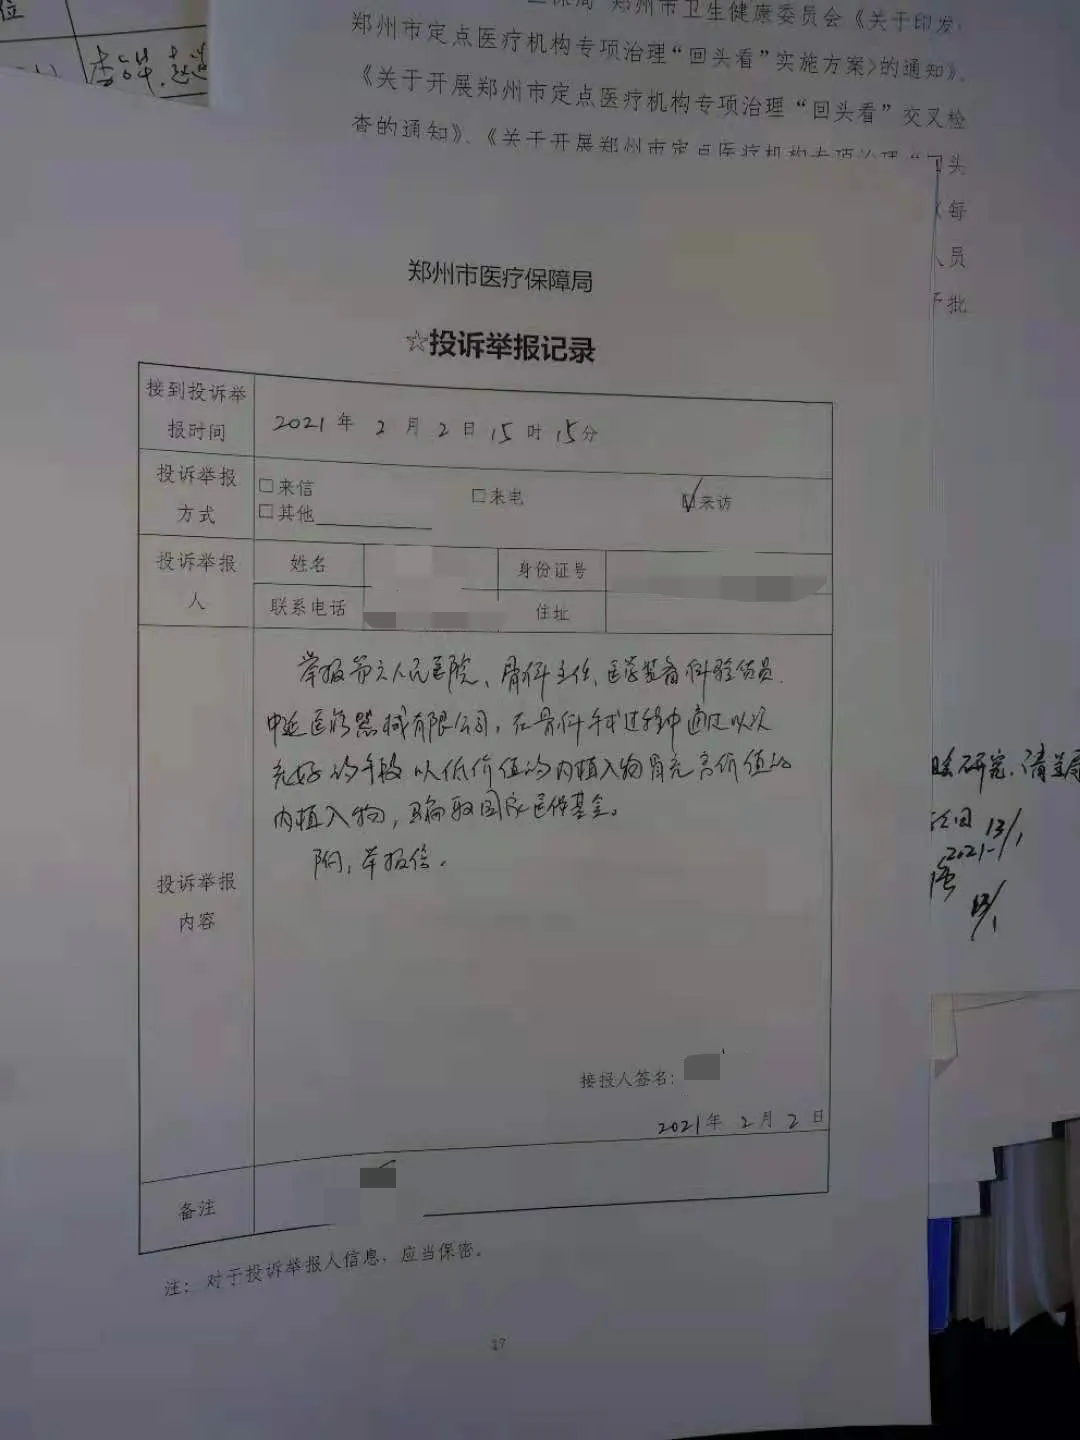 位
保局 郑州市卫生健康委员会《关于印发
郑州市定点医疗机构专项治理“回头看”实施方案>的通知》、
《关于开展郑州市定点医疗机构专项治理“回头看”交叉检
查的通知》、《关于开展郑州市定点医疗机构专项治理“回头
每
人员
批
郑州市医疗保障局
☆投诉举报记录
接到投诉举
报时间
2021年2月2日15时15分
投诉举报
方式
□来信 □来电 ☑来访
□其他
投诉举报
人
姓名 身份证号
联系电话 住址
投诉举报
内容
举报第六人民医院、骨科主任、医学装备科验货员、
中延医疗器械有限公司，在骨科手术过程中通过以次
充好的手段以低价值的内植入物冒充高价值的
内植入物，骗取国家医保基金。
附，举报信。
接报人签名：
2021年2月2日
备注
注：对于投诉举报人信息，应当保密。
17
研究.请
13/1
2021